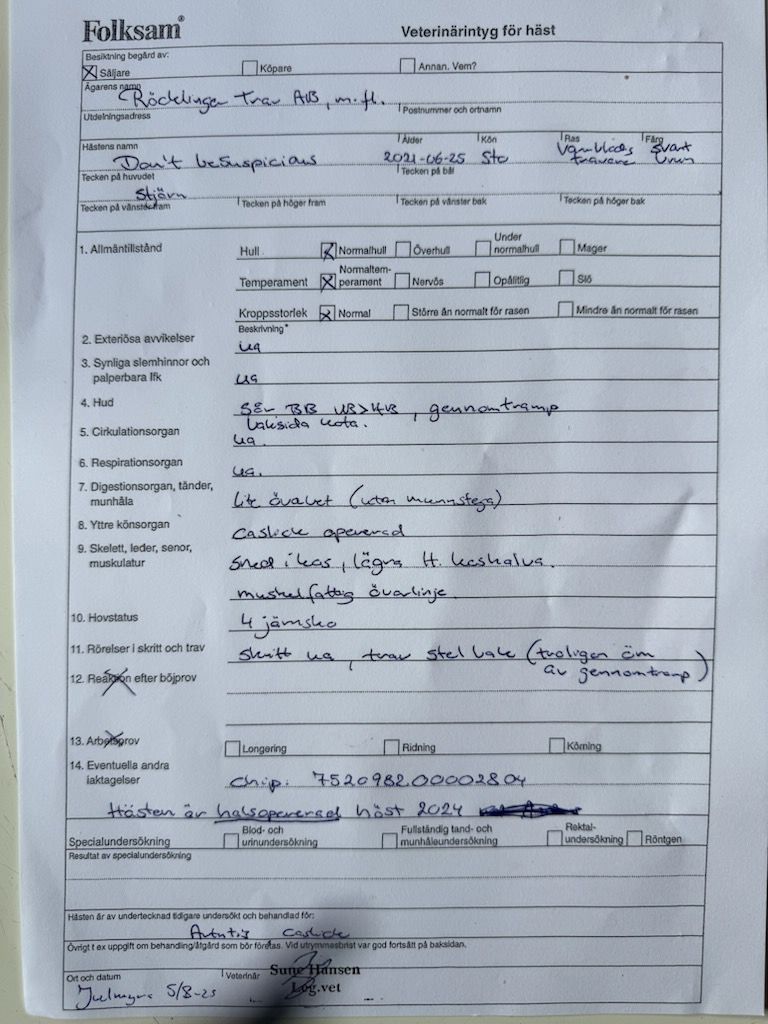 Folksam®
Veterinärintyg för häst
Besiktning begärd av:
Säljare Köpare Annan. Vem?
Ägarens namn
Röcklinger Trav AB, m.fl.
Utdelningsadress Postnummer och ortnamn
Hästens namn Ålder Kön Ras Färg
Don't besuspicious 2021-06-25 Sto Varmblods travare Svart brun
Tecken på huvudet Tecken på bål
Stjärn
Tecken på vänster fram Tecken på höger fram Tecken på vänster bak Tecken på höger bak
1. Allmäntillstånd
Hull Normalhull Överhull Under normalhull Mager
Temperament Normaltem-perament Nervös Opålitlig Slö
Kroppsstorlek Normal Större än normalt för rasen Mindre än normalt för rasen
Beskrivning*
2. Exteriösa avvikelser ua
3. Synliga slemhinnor och palperbara lfk ua
4. Hud Sår BB VB>HB, genomtramp
baksida kota.
5. Cirkulationsorgan ua.
6. Respirationsorgan ua.
7. Digestionsorgan, tänder, munhåla lite (utan
8. Yttre könsorgan Caslick opererad
9. Skelett, leder, senor, muskulatur Sned i kors, lägre H. korshalva.
muskelfattig överlinje.
10. Hovstatus 4 jämsko
11. Rörelser i skritt och trav Skritt ua, trav stel bak (troligen öm
av genomtramp)
12. Reaktion efter böjprov
13. Arbetsprov Longering Ridning Körning
14. Eventuella andra iakttagelser Chip: 752098200002804
Hästen är halsopererad höst 2024
Specialundersökning Blod- och urinundersökning Fullständig tand- och munhåleundersökning Rektal-undersökning Röntgen
Resultat av specialundersökning
Hästen är av undertecknad tidigare undersökt och behandlad för:
Artrit, Caslick
Övrigt t ex uppgift om behandling/åtgärd som bör företas. Vid utrymmesbrist var god fortsätt på baksidan.
Ort och datum Veterinär
Sune Hansen
Leg.vet
Julmyra 5/8-25